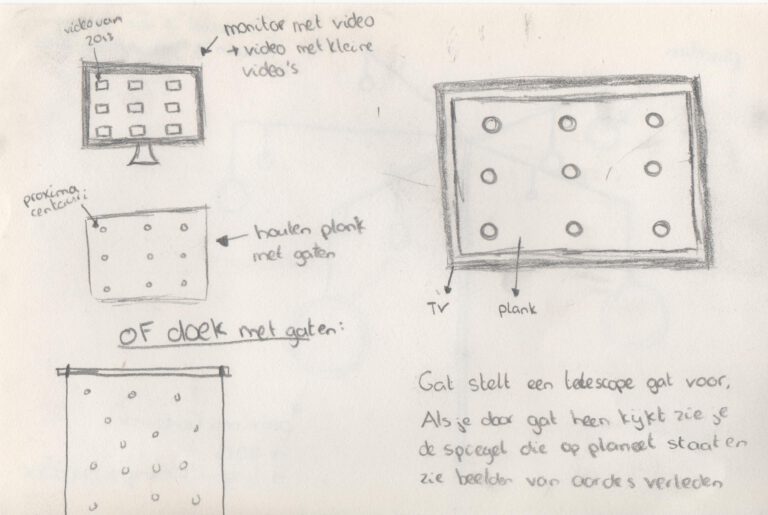 video van
2013
monitor met video
→ video met kleine
video's
proxima
centauri
houten plank
met gaten
OF doek met gaten:
TV
plank
Gat stelt een telescope gat voor,
Als je door gat heen kijkt zie je
de spiegel die op planeet staat en
zie beelden van aardes verleden